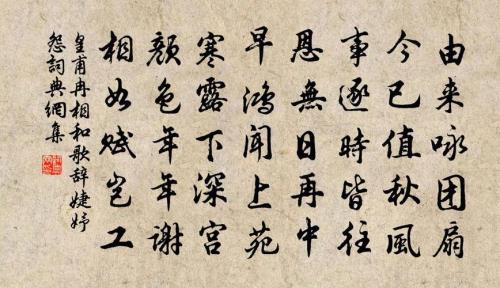 由来咏团扇
今已值秋风
事逐時皆往
恩無日再中
早鴻闻上苑
寒露下深宫
颜色年年谢
相如赋岂工
皇甫冉相和歌辞婕妤
怨詞典網集